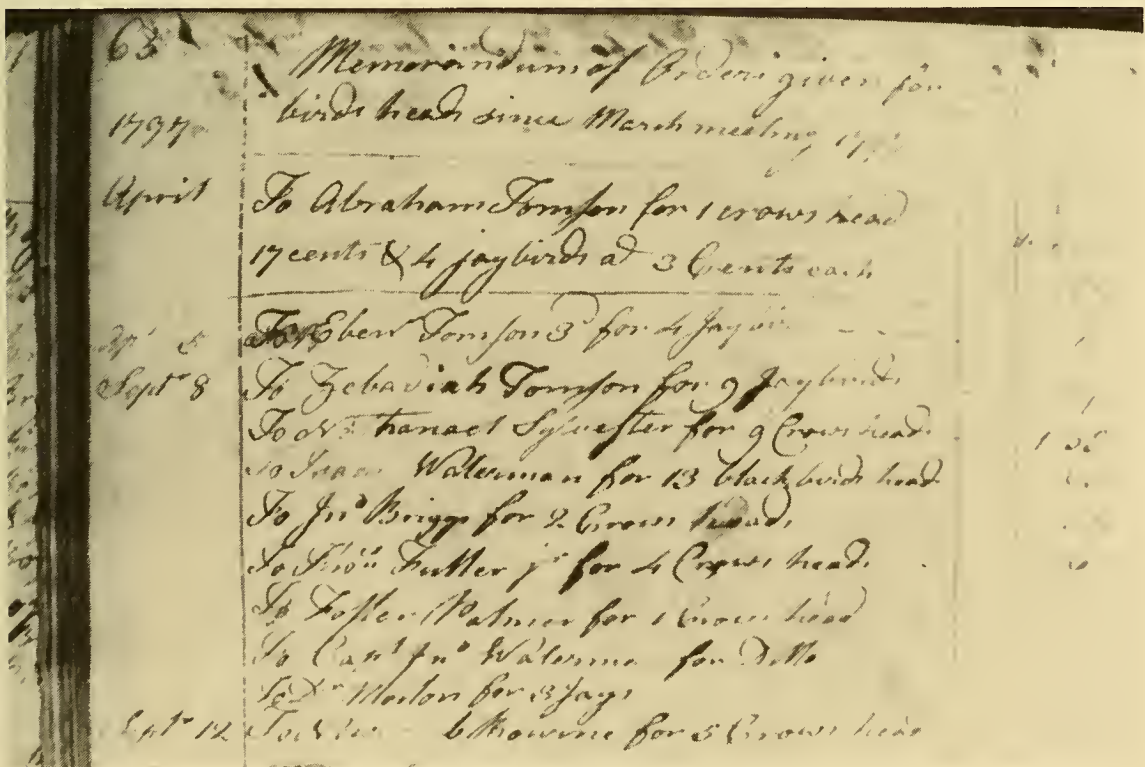 63
Memorandum of Orders given for
1797 birds heads since March meeting
April To Abraham Tomson for 1 crows head
17 cents & 4 jaybirds at 3 Cents each
To Ebenr Tomson 3d for 4 Jay
Septr 8 To Zebadiah Tomson for 9 Jaybirds
To Nathanael Sylvester for 9 Crows heads 1
To Isaac Waterman for 13 black birds head
To Jno Briggs for 2 Crows heads
To Thos Fuller jr for 4 Crows heads
To Foster Palmer for 1 Crows head
To Capt Jno Waterman for Ditto
To Dr Morton for 3 Jays
Sept 12 Bourne for 5 Crows head